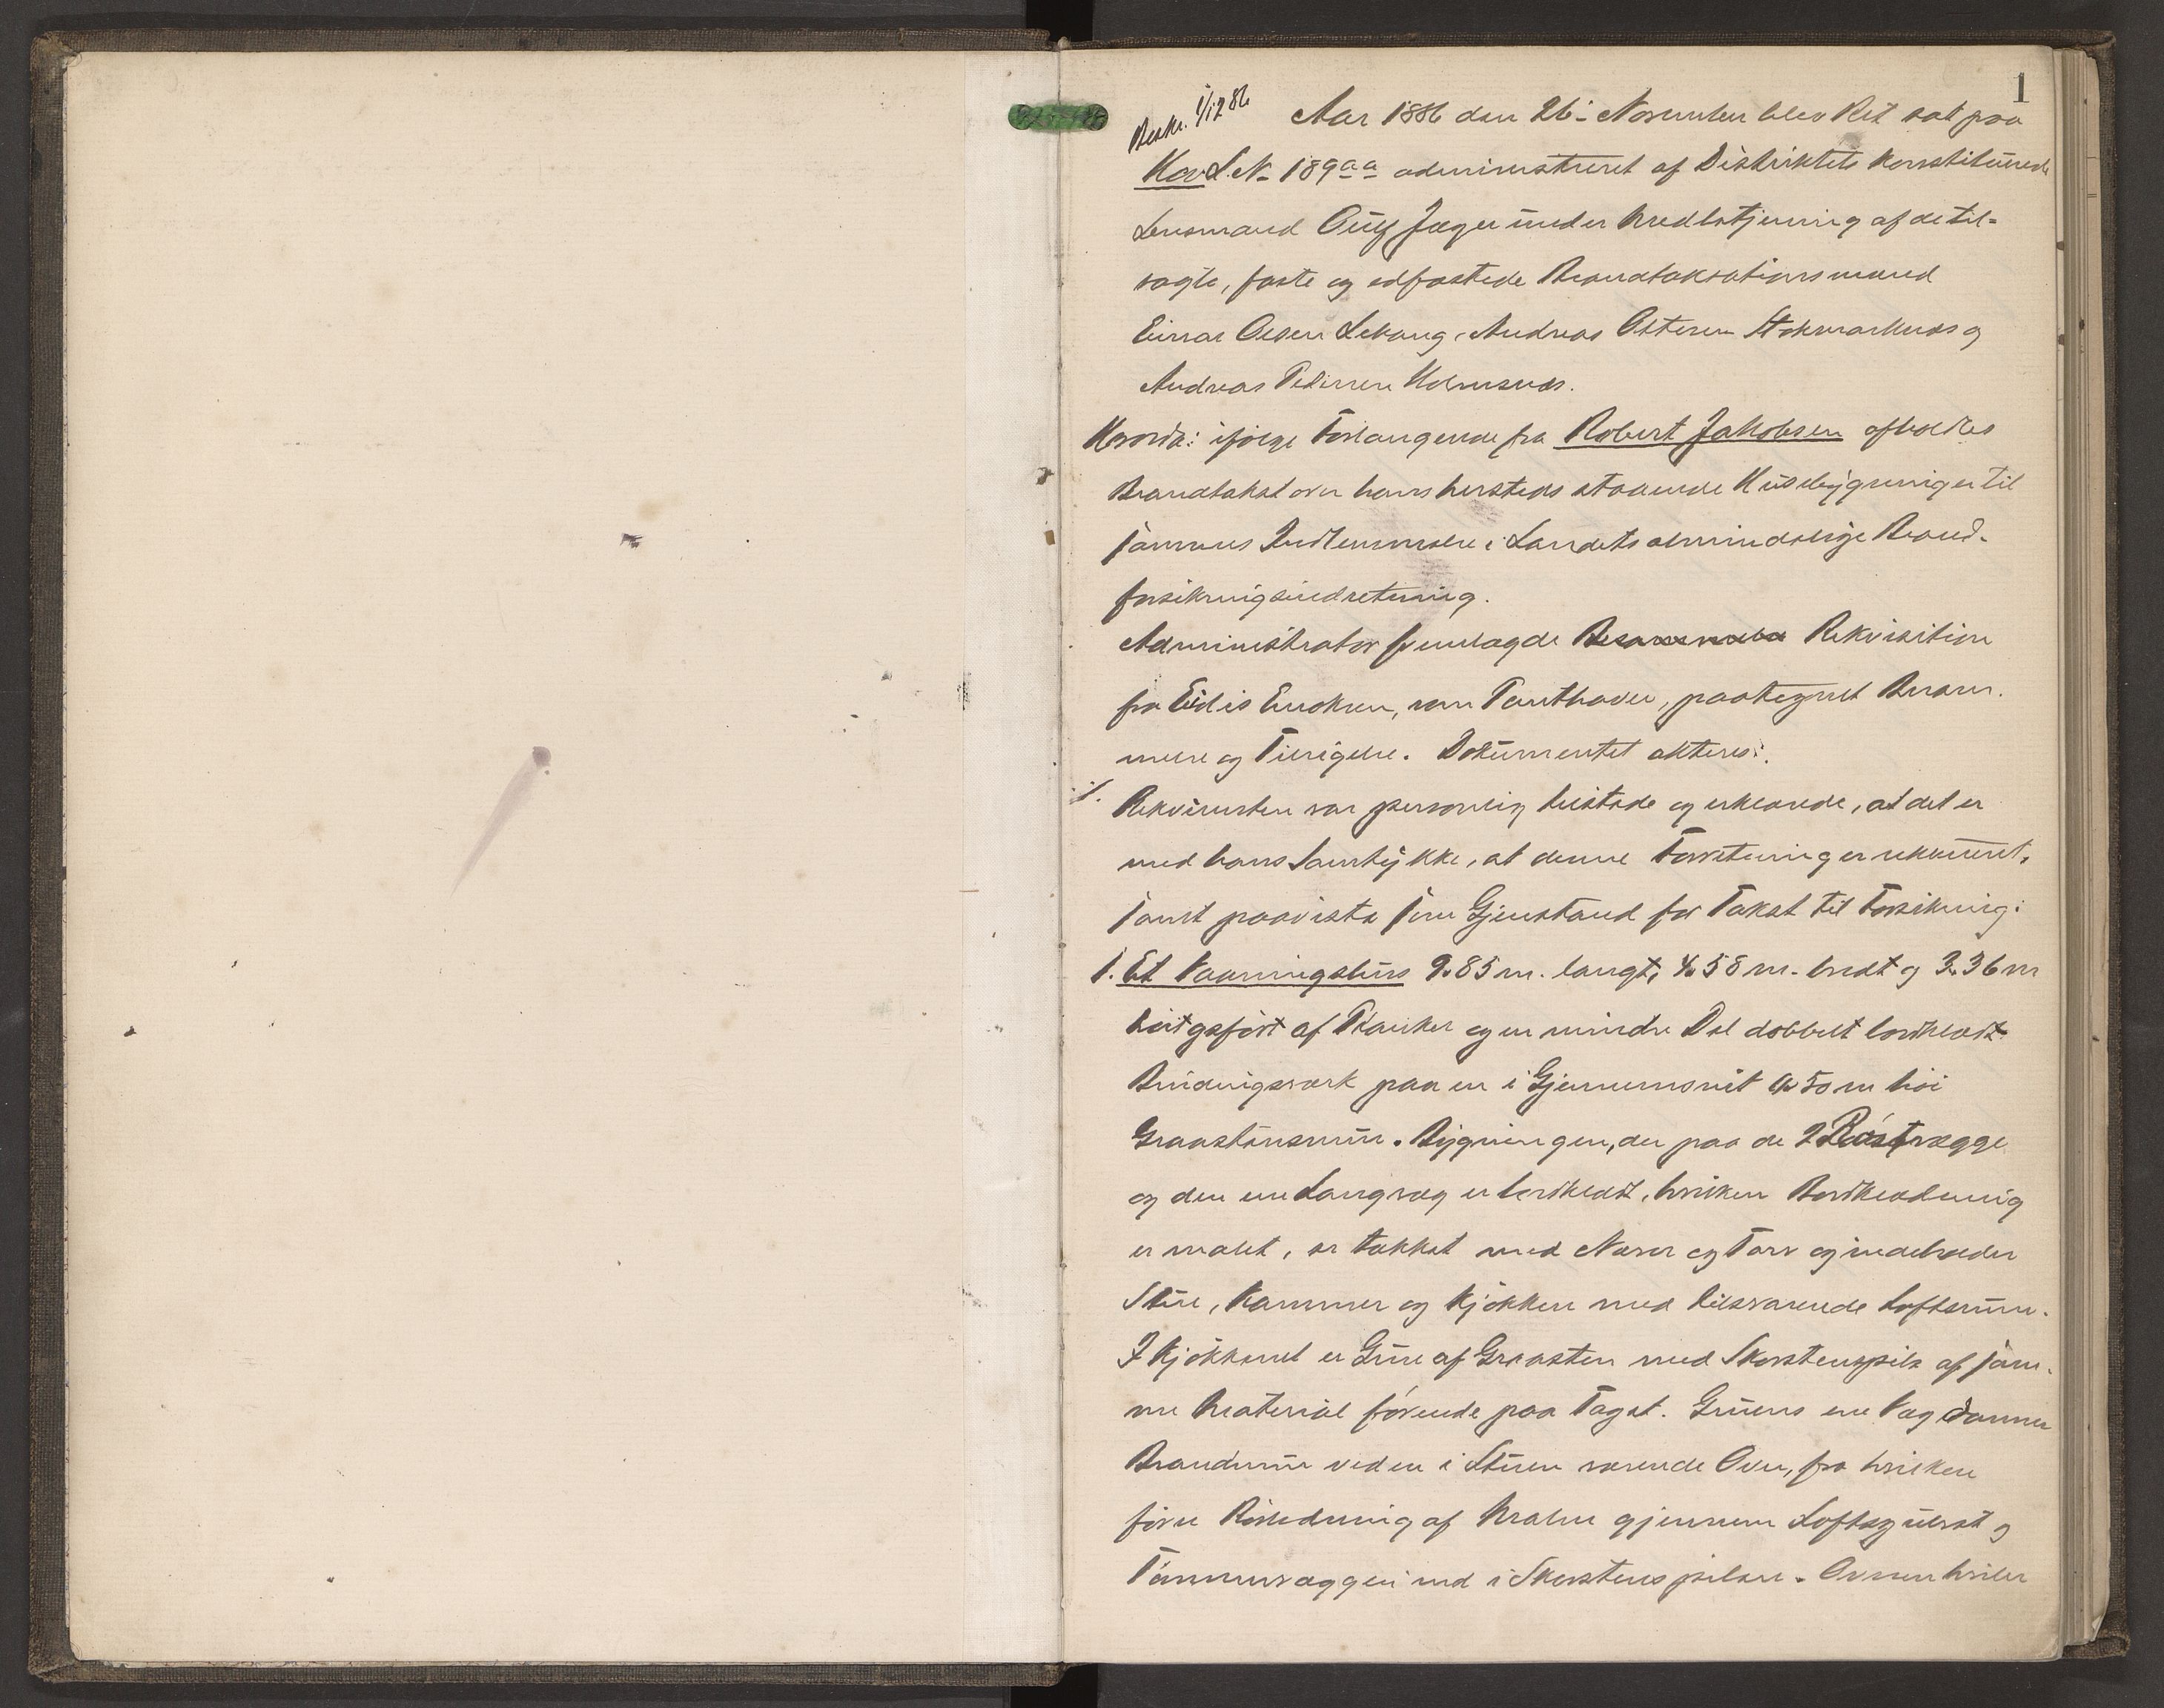 1
Beskr. 1/12 86
Aar 1886 den 26 - November blev Ret sat paa
Hov L. N- 189 aa administreret af Distriktets konstituerede
Lensmand Aug Jæger under Medbetjening af de til-
sagte, faste og edfæstede Brandtaksationsmænd
Einar Olsen Lekang, Andreas Ottesen Stokmarknes og
Andreas Pedersen
Hvorda: ifølge Forlangende fra Robert Jakobsen afholdtes
Brandtakst over hans hersteds staaende Husbygninger til
sammes Indlemmelse i Landets almindelige Brand-
forsikringsindretning.
Administrator fremlagde Rekvisition
fra Eidis Enoksen, som Panthaver, paategnet Beram-
melse og Tilsigelse. Dokumentet akteres:
·/. Rekvirenten var personlig tilstede og erklærede, at det er
med hans Samtykke, at denne Forretning er rekvireret,
samt paaviste som Gjenstand for Takst til Forsikring:
1. Et Vaaningshus 9.85 m. langt, 4.58 m. bredt og 3.36 m
høit opført af Planker og en mindre Del dobbelt bordklædt
Bindingsværk paa en i Gjennemsnit 0.50 m høi
Graastensmur. Bygningen, der paa de 2 Røstvægge
og den ene Langvæg er bordklædt, hvilken Bordklædning
er malet, er tækket med Næver og Torv og indeholder
Stue, Kammer og Kjøkken med tilsvarende Loftsrum.
I Kjøkkenet er Grue af Graasten med Skorstenspibe af sam-
me Material førende paa Taget. Gruens ene Væg danner
Brandmur ved en i Stuen værende Ovn, fra hvilken
fører Rørledning af Malm gjennem Loftsgulvet og
Tømmervæggen ind i Skorstenspiben. Ovnen hviler